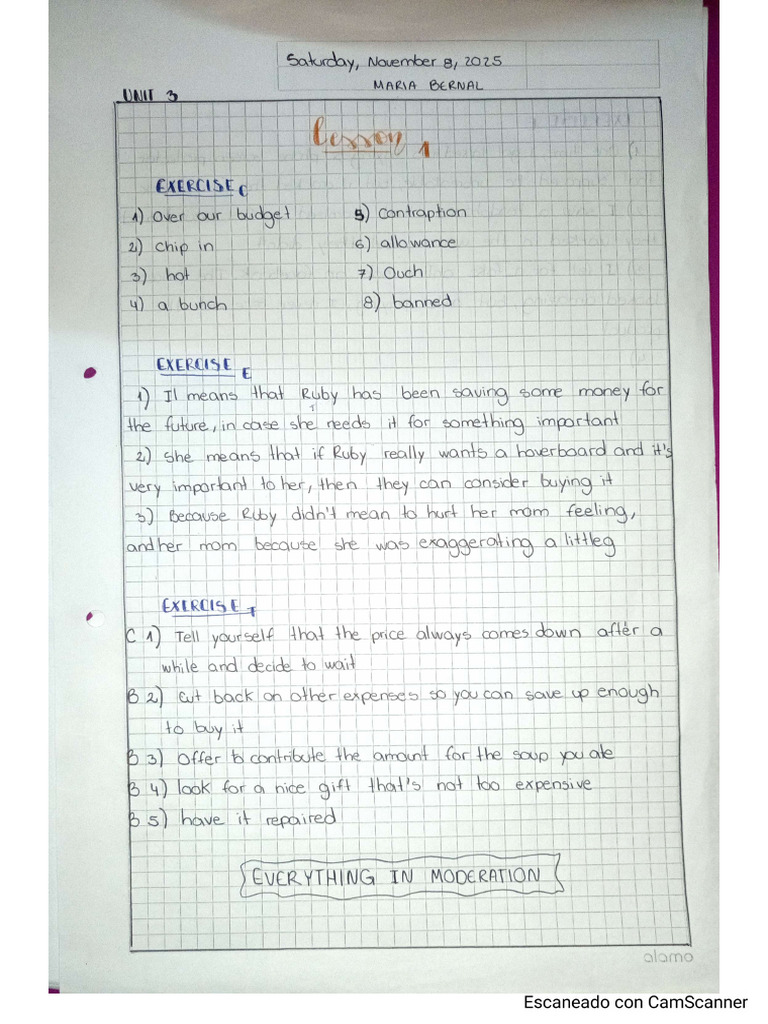 Saturday, November 8, 2025
MARIA BERNAL
UNIT 3
Lesson 1
EXERCISE C
1) Over our budget
2) chip in
3) hot
4) a bunch
5) contraption
6) allowance
7) Ouch
8) banned
EXERCISE E
1) It means that Ruby has been saving some money for
the future, in case she needs it for something important
2) she means that if Ruby really wants a hoverboard and it's
very important to her, then they can consider buying it
3) Because Ruby didn't mean to hurt her mom feeling,
and her mom because she was exaggerating a littleg
EXERCISE F
C 1) Tell yourself that the price always comes down after a
while and decide to wait
B 2) Cut back on other expenses so you can save up enough
to buy it
B 3) Offer to contribute the amount for the soup you ate
B 4) look for a nice gift that's not too expensive
B 5) have it repaired
EVERYTHING IN MODERATION
alamo
Escaneado con CamScanner